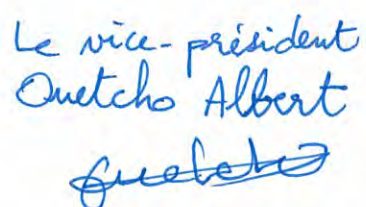 Le vice-président
Ouetcho Albert
Ouetcho